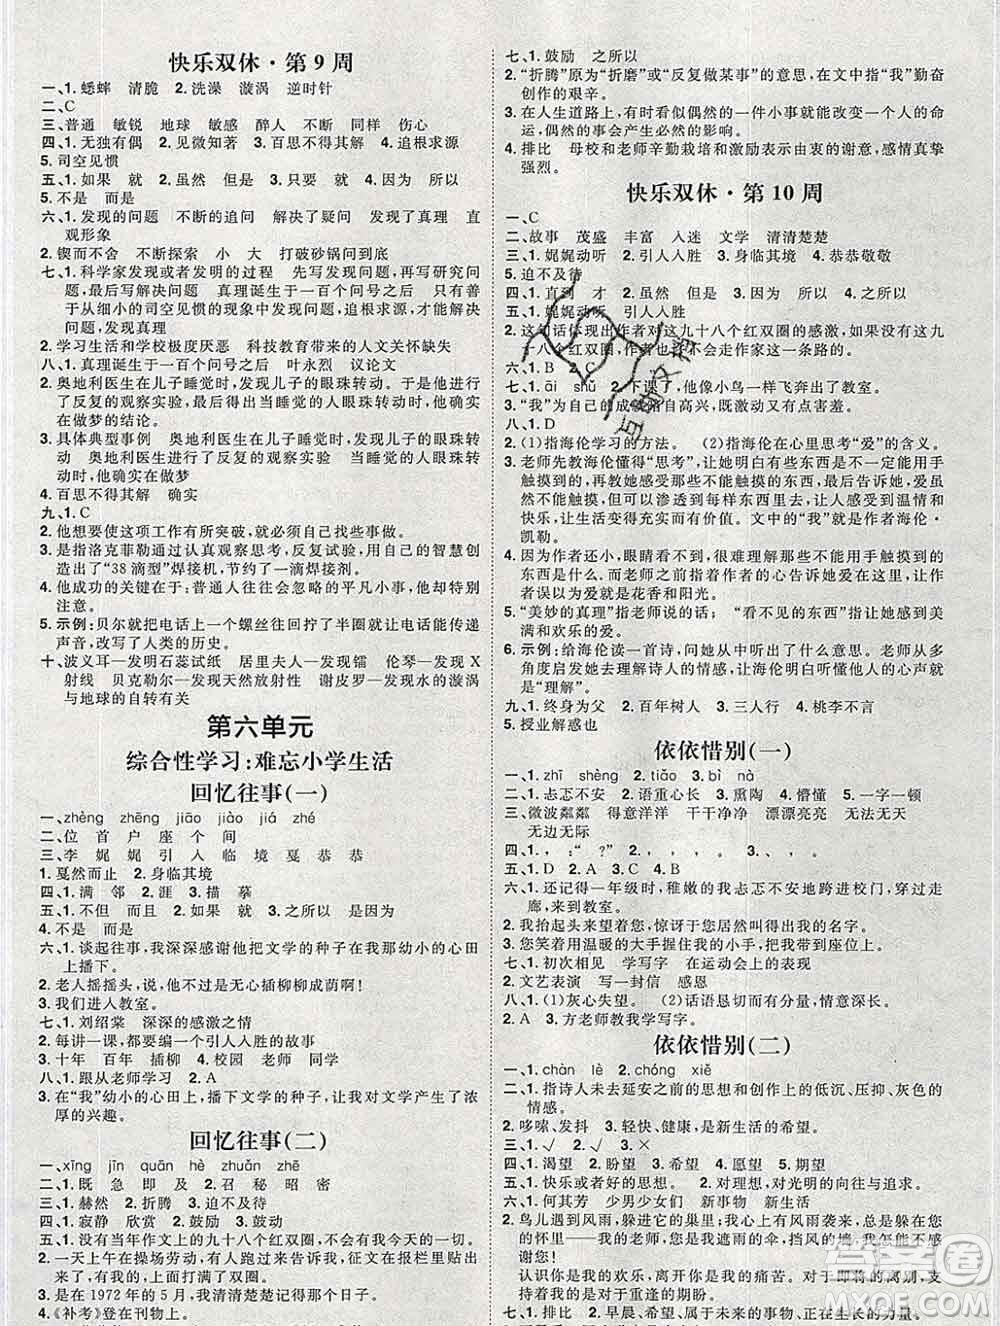 快乐双休·第9周
一、1. 蟋蟀　清脆　2. 洗澡　漩涡　逆时针
二、C
三、普通　敏锐　地球　敏感　醉人　不断　同样　伤心
四、1. 无独有偶　2. 见微知著　3. 百思不得其解　4. 追根求源
5. 司空见惯
五、1. 如果　就　2. 虽然　但是　3. 只要　就　4. 因为　所以
5. 不是　而是
六、1. 发现的问题　不断的追问　解决了疑问　发现了真理　直
观形象
2. 锲而不舍　不断探索　小　大　打破砂锅问到底
七、1. 科学家发现或者发明的过程　先写发现问题，再写研究问
题，最后写解决问题　真理诞生于一百个问号之后　只有善
于从细小的司空见惯的现象中发现问题，才能解决问题，才能
发现真理
2. 学习生活和学校极度厌恶　科技教育带来的人文关怀缺失
八、1. 真理诞生于一百个问号之后　叶永烈　议论文
2. 奥地利医生在儿子睡觉时，发现儿子的眼珠转动时，他进行
了反复的观察实验，最后得出当睡觉的人眼珠转动时，他确实
在做梦的结论。
3. 具体典型事例　奥地利医生在儿子睡觉时，发现儿子的眼珠转
动时，他进行了反复的观察实验　当睡觉的人眼珠转动时，他
确实在做梦
4. 百思不得其解　确实
九、1. C
2. 他想要使这项工作有所突破，就尝试着找些事做。
3. 是指洛克菲勒通过认真观察思考，反复试验，用自己的智慧创
造出了“38滴型”焊接机，节约了一滴焊接剂。
4. 他成功的关键在于：普通人往往会忽略的平凡小事，他却特别
注意。
5. 示例：贝尔就把电话上一个螺丝往回拧了半圈就让电话能传递
声音，改写了人类的历史。
十、波义耳—发明石蕊试纸　居里夫人—发现镭　伦琴—发现X
射线　贝克勒尔—发现天然放射性　谢皮罗—发现水的漩涡
与地球的自转有关
第六单元
综合性学习：难忘小学生活
回忆往事(一)
一、zhèng　zhēng　jiāo　jiào　jiá　zhé
二、位　首　户　座　个　间
三、李　娓　娓　引　人　临　境　戛　恭　恭
1. 戛然而止　2. 身临其境
四、1. 满　邻　2. 涯　3. 描　摹
五、1. 不但　而且　2. 如果　就　3. 之所以　是因为
4. 不是　而是
六、1. 谈起往事，我深深感谢他把文学的种子在我那幼小的心田
上播下。
2. 老人摇摇头，说，可是没有无心插柳柳成荫啊！
3. 我们进入教室。
七、1. 刘绍棠　深深的感激之情
2. 每讲一课，都要编一个引人入胜的故事
3. 十年　百年　插柳　4. 校园　老师　同学
八、1. 跟从老师学习　2. A
3. 在“我”幼小的心田上，播下文学的种子，让我对文学产生了浓
厚的兴趣。
回忆往事(二)
一、xīng　jīn　quān　hè　zhuǎn　zhě
二、1. 既　急　即　及　2. 召　秘　昭　密
三、1. 赫然　2. 折腾　3. 迫不及待
四、1. 寂静　欣赏　2. 鼓励　3. 鼓动
五、1. 没有当年作文上的九十八个红双圈，就不会有我今天的一切。
2. 一天上午在操场劳动，有个同学跑来告诉我，征文在报栏里贴出
来了，有我的，上面打满了双圈。
3. 是在1972年的5月，我清清楚楚地记得。
4.《补考》登在刊物上。
七、1. 鼓励　之所以
2. “折腾”原为“折磨”或“反复做某事”的意思，在文中指“我”勤奋
创作的艰辛。
3. 在人生道路上，有时看似偶然的一件小事就能改变一个人的命
运，偶然的事会产生必然的影响。
4. 排比　母校和老师辛勤栽培和激励表示由衷的谢意，感情真挚
强烈。
快乐双休·第10周
一、C
二、故事　茂盛　丰富　入迷　文学　清清楚楚
三、1. 娓娓动听　2. 引人入胜　3. 身临其境　4. 恭恭敬敬
5. 迫不及待
四、1. 直到　才　2. 虽然　但是　3. 因为　所以　4. 所以
五、1. 娓娓动听　引人入胜
2. 这句话体现出作者对这九十八个红双圈的感激，如果没有这九
十八个红双圈，也许不会走作家这一条路的。
六、1. B　2. A
七、1. āi　shǔ　2. 下课了，他像小鸟一样飞奔出了教室。
3. “我”为自己的成绩暗自高兴，既激动又有点害羞。
八、1. D
2. (1)指海伦学习的方法。　(2)指海伦在心里思考“爱”的含义。
3. 老师先教海伦懂得“思考”，让她明白有些东西是不能用手
触摸到的，再教她感受那些不能触摸的东西，最后告诉她，爱
虽然不能触摸，但可以渗透到每样东西里去，让人感受到温情和
快乐，让生活变得充实而有价值。文中的“我”就是作者海伦·
凯勒。
4. 因为作者还小，眼睛看不见，很难理解那些不能用手触摸到的
东西的含义。而老师之前指着作者的心告诉她爱在这里，让作
者误以为爱就是花香和阳光。
5. “美妙的真理”指老师说的话；“看不见的东西”指对这世界充满美
满和欢乐的爱。
6. 示例：给海伦读一首诗，问她从中听出了什么。老师可以从多
角度启发她去理解诗人的情感，让海伦明白听懂他人的心声就
是“理解”。
九、1. 终身为父　2. 百年树人　3. 三人行　4. 桃李不言
5. 授业解惑也
依依惜别(一)
一、1. zhī　shèng　2. tiāo　3. bì　nà
二、1. 忐忑不安　2. 语重心长　3. 熏陶　4. 懵懂　5. 一字一顿
三、微波粼粼　得意洋洋　干干净净　漂漂亮亮　无法无天
无边无际
四、1. ，：“　？”　2. ，，，。
五、1. D　2. A　3. C　4. B
六、1. 还记得一年级时，稚嫩的我忐忑不安地跨进校门，穿过走
廊，来到教室。
2. 我抬起头来仰望着您，惊讶于您居然叫得出我的名字。
3. 您笑着用温暖的大手握住我的小手，把我带到座位上。
七、1. 初次相见　学写字　在运动会上的表现
2. 文艺表演　写一封信　感恩
八、1. (1)灰心失望。　(2)话语恳切而有分量，情意深长。
2. A　3. 方老师教我学写字。
依依惜别(二)
一、1. chàn　lè　2. chóng　xiě
二、1. 指诗人未去延安之前的思想和创作上的低沉、压抑、灰色的
情感。
2. 哆嗦、发抖　3. 轻快、健康，是新生活的希望。
三、1. √　2. √　3. ×
四、1. 渴望　2. 盼望　3. 希望　4. 愿望　5. 期望
五、1. 快乐或者好的思想。　2. 对理想，对光明的向往与追求。
六、1. 何其芳　少男少女们　新事物　新生活
2. 鸟儿遇到风雨，躲进它的巢里；我心上有风雨袭来，总是躲在您
的怀里——我的老师，您是我遮雨的伞，挡风的墙，我怎能不感
谢您！
认识你是我的欢乐，离开你是我的痛苦。对于即将的离别，也许
支持我的就是对于重逢的期盼。
七、1. 排比　2. 早晨、希望、未来的事物、正在生长的力量